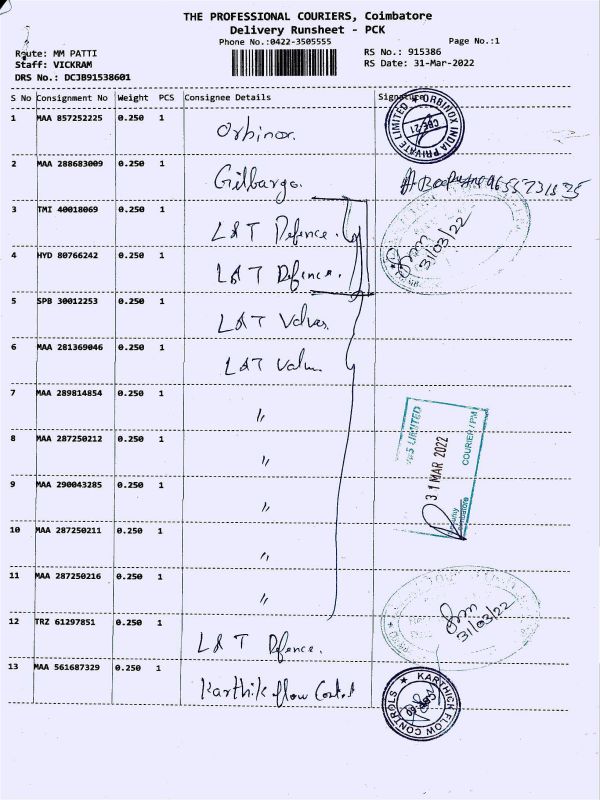 THE PROFESSIONAL COURIERS, Coimbatore
Delivery Runsheet - PCK
Phone No.:0422-3505555
Page No.:1
Route: MM PATTI
RS No.: 915386
Staff: VICKRAM
RS Date: 31-Mar-2022
DRS No.: DCJB91538601
S No Consignment No Weight PCS Consignee Details Signature
1 MAA 857252225 0.250 1 Orbinox
ORBINOX INDIA PRIVATE LIMITED
CBE-21
2 MAA 288683009 0.250 1 Gilbargo.
3 TMI 40018069 0.250 1 L&T Defence.
31/03/22
4 HYD 80766242 0.250 1 L&T Defence.
5 SPB 30012253 0.250 1 L&T Valves
6 MAA 281369046 0.250 1 L&T Valves
7 MAA 289814854 0.250 1 〃
8 MAA 287250212 0.250 1 〃
LIMITED
31 MAR 2022
COURIER / PM
9 MAA 290043285 0.250 1 〃
10 MAA 287250211 0.250 1 〃
11 MAA 287250216 0.250 1 〃
12 TRZ 61297851 0.250 1 L&T Defence.
31/03/22
13 MAA 561687329 0.250 1 Karthik flow Control
KARTHICK FLOW CONTROLS